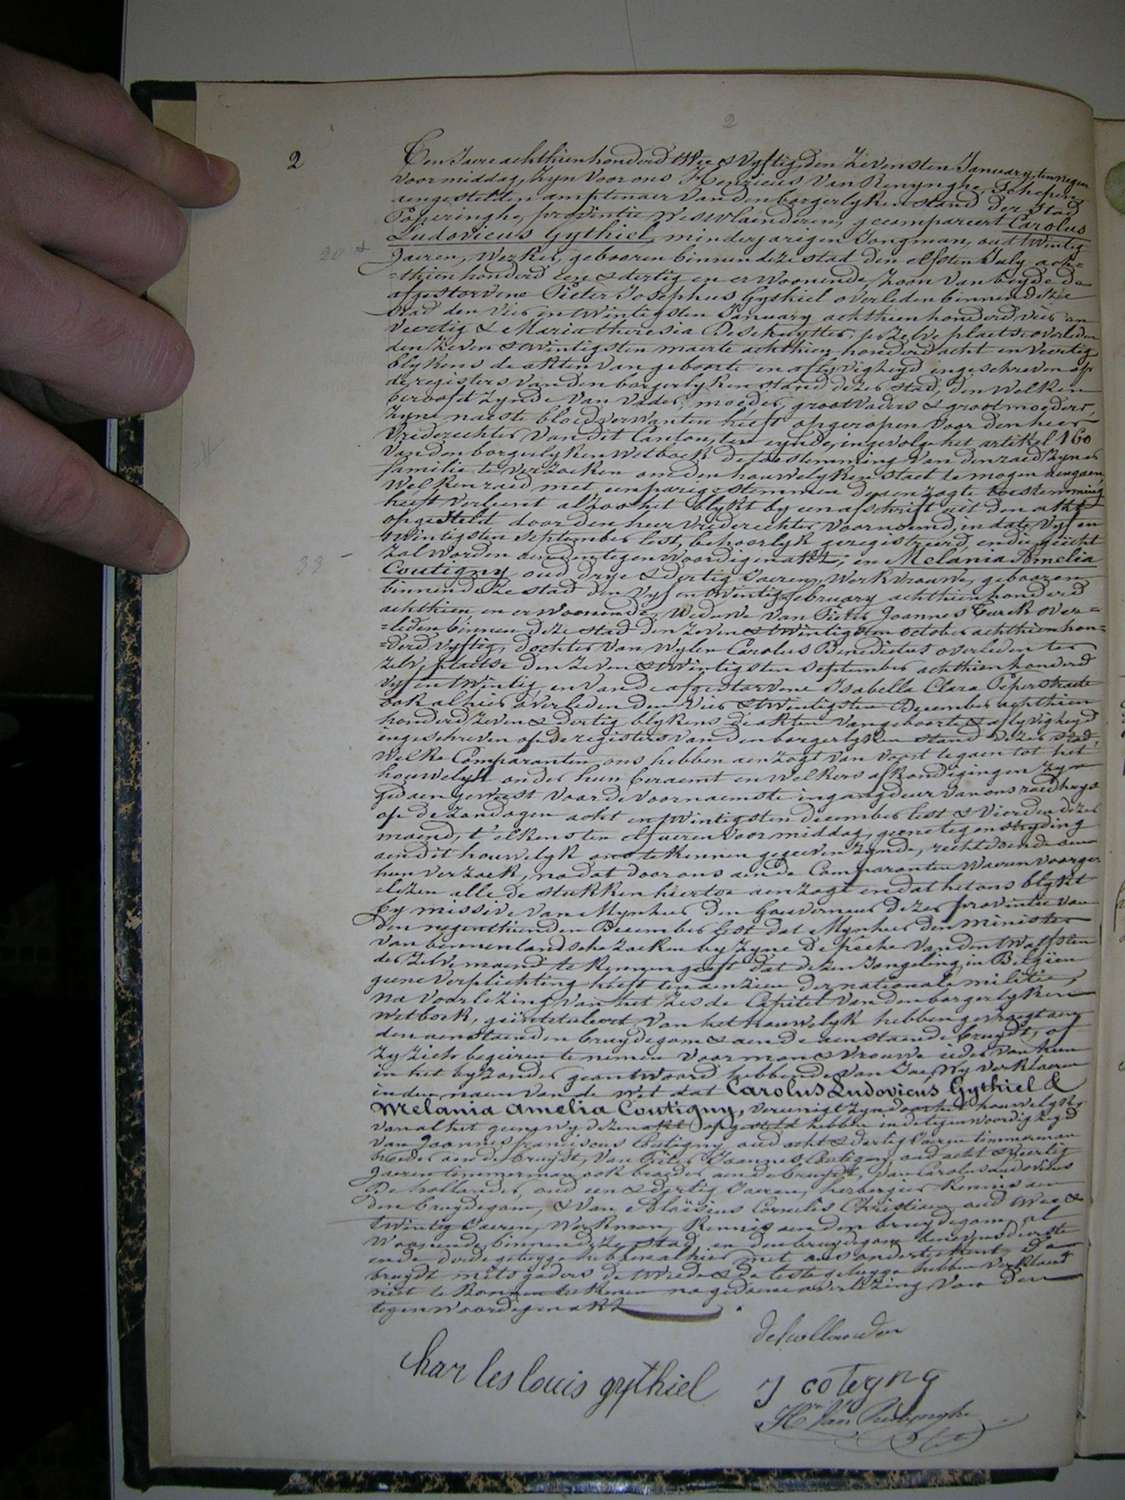 2
2
Ten Jaere achthien honderd twee & vyftig den zevensten January, ten negen
voormiddag, zyn voor ons Henricus Van Renynghe, Schepen
aengestelden amptenaer van den borgerlyken stand der Stad
Poperinghe, provintie Westvlaenderen, gecompareert Carolus
Ludovicus Gythiel, minderjarigen Jongman, oud twintig
Jaeren, werker, gebooren binnen deze stad den elfsten July acht=
=thien honderd een & dertig en er woonende, zoon van beyde de
afgestorvene Pieter Josephus Gythiel overleden binnen deze
stad den vier en twintigsten January achthien honderd vier en
veertig & Maria theresia Deschuytter, ter zelve plaetse overleden
den zeven & twintigsten maerte achthien honderd acht en veertig
blykens de akten van geboorte en aflyvigheyd ingeschreven op
de registers van den borgerlyken stand dezer stad, den welken
beroofd zynde van vader, moeder, grootvaders & grootmoeders,
zyne naeste bloedverwanten heeft opgeropen voor den heer
Vrederechter van dit Canton, ten eynde, ingevolge het artikel 160
van den borgerlyken wetboek de toestemming van den raed zyner
familie te verzoeken om den houwelyken staet te mogen aengaen,
welken raed met eenparige stemmen de aenzogte toestemming
heeft verleent alzoo het blykt by een afschrift uit den akt
opgesteld door den heer vrederechter voornoemd, in date vyf en
twintigsten september lest, behoorlyk geregistreerd, en die gehecht
zal worden aen den tegenwoordigen akt, en Melania Amelia
Coutigny, oud drye & dertig Jaeren, werkvrouwe, gebooren
binnen deze stad den vyf en twintig february achthien honderd
achthien en er woonende, weduwe van Pieter Joannes Turck over=
=leden binnen deze stad den zeven & twintigsten october achthien hon=
=derd vyftig, dochter van wylen Carolus Benedictus overleden ter
zelve plaetse den zeven & twintigsten september achthien honderd
vyf en twintig, en van de afgestorvene Isabella Clara Peperstraete
ook alhier overleden den vier & twintigsten December achthien
honderd zeven & dertig blykens de akten van geboorte & aflyvigheyd
ingeschreven op de registers van den borgerlyken stand dezer stad,
welke Comparanten ons hebben aenzogt van voort te gaen tot het
houwelyk onder hun beraemt en welkers afkondigingen zyn
gedaen geweest voor de voornaemste ingangdeur van ons raedhuys
op de zondagen acht en twintigsten december lest & vierden dezer
maend, t'elkens ten elf ueren voormiddag, geene tegenstryding
aen dit houwelyk ons te kennen gegeven zynde, rechtdoende aen
hun verzoek, na dat door ons aen de Comparanten waeren voorge=
=lezen alle de stukken hiertoe aenzogt en dat het ons blykt
by missive van Mynheer den Gouverneur dezer provintie van
den negenthienden December lest dat Mynheer den Minister
van binnenlandsche zaeken by zyne depeche van den twaelfsten
der zelve maend te kennen geeft dat dezen Jongeling in Belgien
geene verplichting heeft ten aenzien der nationale militie,
na voorlezing van het zesde Capitel van den borgerlyken
wetboek, geintituleert van het houwelyk hebben gevraegt aen
den aenstaenden bruydegom & aen de aenstaende bruydt, of
zy zich begeiren te nemen voor man & vrouwe ieder van hun
in het byzonder geantwoord hebbende van Jae, wy verklaeren
in den naem van de wet dat Carolus Ludovicus Gythiel &
Melania Amelia Coutigny, vereenigt zyn door het houwelyk
van al het geene wy dezen akt opgesteld hebben in de tegenwoordigheyd
van Joannes franciscus Coutigny oud acht & dertig Jaeren timmerman
broeder aen de bruydt, van Pieter Joannes Coutigny oud acht & veertig
Jaeren timmerman ook broeder aen de bruydt, van Carolus Ludovicus
De hollander, oud een & dertig Jaeren, herbergier kennis aen
den bruydegom, & van Aloïsius Cornelis Christiaen oud twee &
twintig Jaeren, werkman, kennis aen den bruydegom, al
woonende binnen deze stad, en den bruydegom benevens d'eerste
ende derde getuyge hebben alhier met ons onderteekent de
bruydt mitsgaders de tweede & de leste getuyge hebben verklaerd
niet te konnen teekenen na gedaene voorlezing van den
tegenwoordigen akt
dehollander
Charles louis gythiel
J cotegny
Hri Van Renynghe